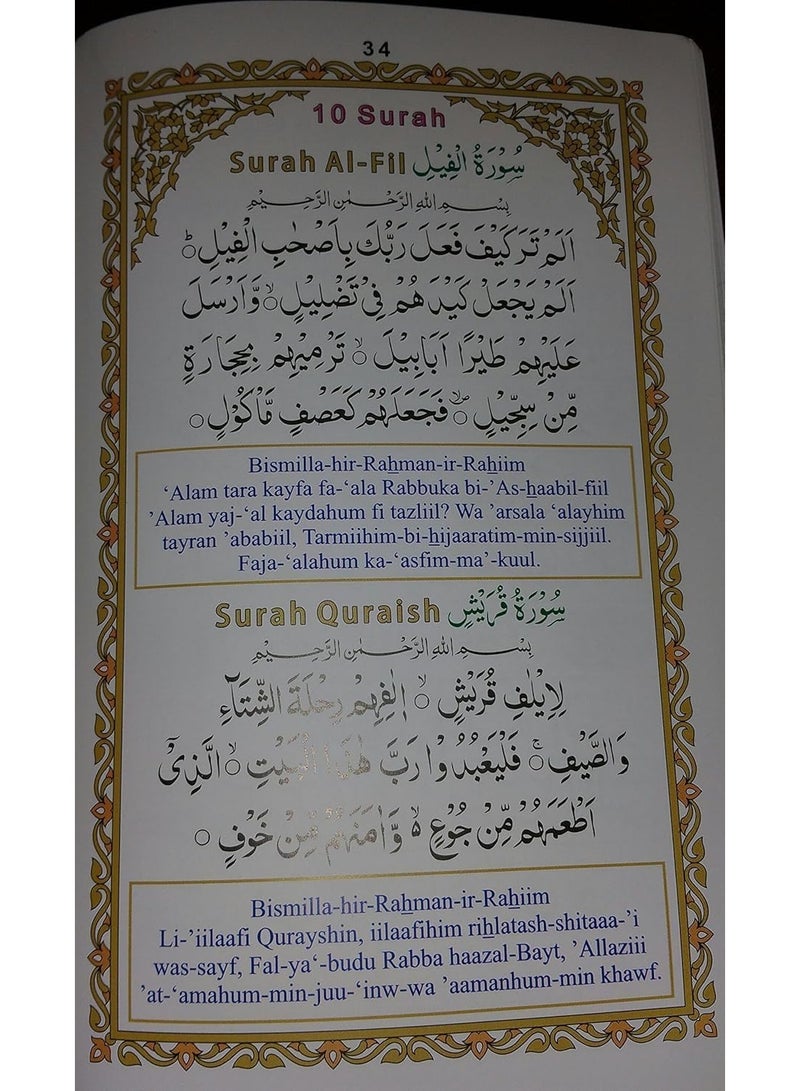 34
10 Surah
Surah Al-Fil سُوْرَةُ الْفِيْلِ
بِسْمِ اللهِ الرَّحْمٰنِ الرَّحِيْمِ
اَلَمْ تَرَ كَيْفَ فَعَلَ رَبُّكَ بِاَصْحٰبِ الْفِيْلِ ○ؕ
اَلَمْ يَجْعَلْ كَيْدَهُمْ فِيْ تَضْلِيْلٍ ○ۙ وَّاَرْسَلَ
عَلَيْهِمْ طَيْرًا اَبَابِيْلَ ○ۙ تَرْمِيْهِمْ بِحِجَارَةٍ
مِّنْ سِجِّيْلٍ ○ۙ فَجَعَلَهُمْ كَعَصْفٍ مَّاْكُوْلٍ ○
Bismilla-hir-Rahman-ir-Rahiim
‘Alam tara kayfa fa-‘ala Rabbuka bi-’As-haabil-fiil
’Alam yaj-‘al kaydahum fi tazliil? Wa ’arsala ‘alayhim
tayran ’ababiil, Tarmiihim-bi-hijaaratim-min-sijjiil.
Faja-‘alahum ka-‘asfim-ma’-kuul.
Surah Quraish سُوْرَةُ قُرَيْشٍ
بِسْمِ اللهِ الرَّحْمٰنِ الرَّحِيْمِ
لِاِيْلٰفِ قُرَيْشٍ ○ۙ اٖلٰفِهِمْ رِحْلَةَ الشِّتَآءِ
وَالصَّيْفِ ○ۚ فَلْيَعْبُدُوْا رَبَّ هٰذَا الْبَيْتِ ○ۙ الَّذِيْٓ
اَطْعَمَهُمْ مِّنْ جُوْعٍ ○ۙ وَّاٰمَنَهُمْ مِّنْ خَوْفٍ ○
Bismilla-hir-Rahman-ir-Rahiim
Li-’iilaafi Qurayshin, iilaafihim rihlatash-shitaaa-’i
was-sayf, Fal-ya‘-budu Rabba haazal-Bayt, ’Allaziii
’at-‘amahum-min-juu-‘inw-wa ’aamanhum-min khawf.